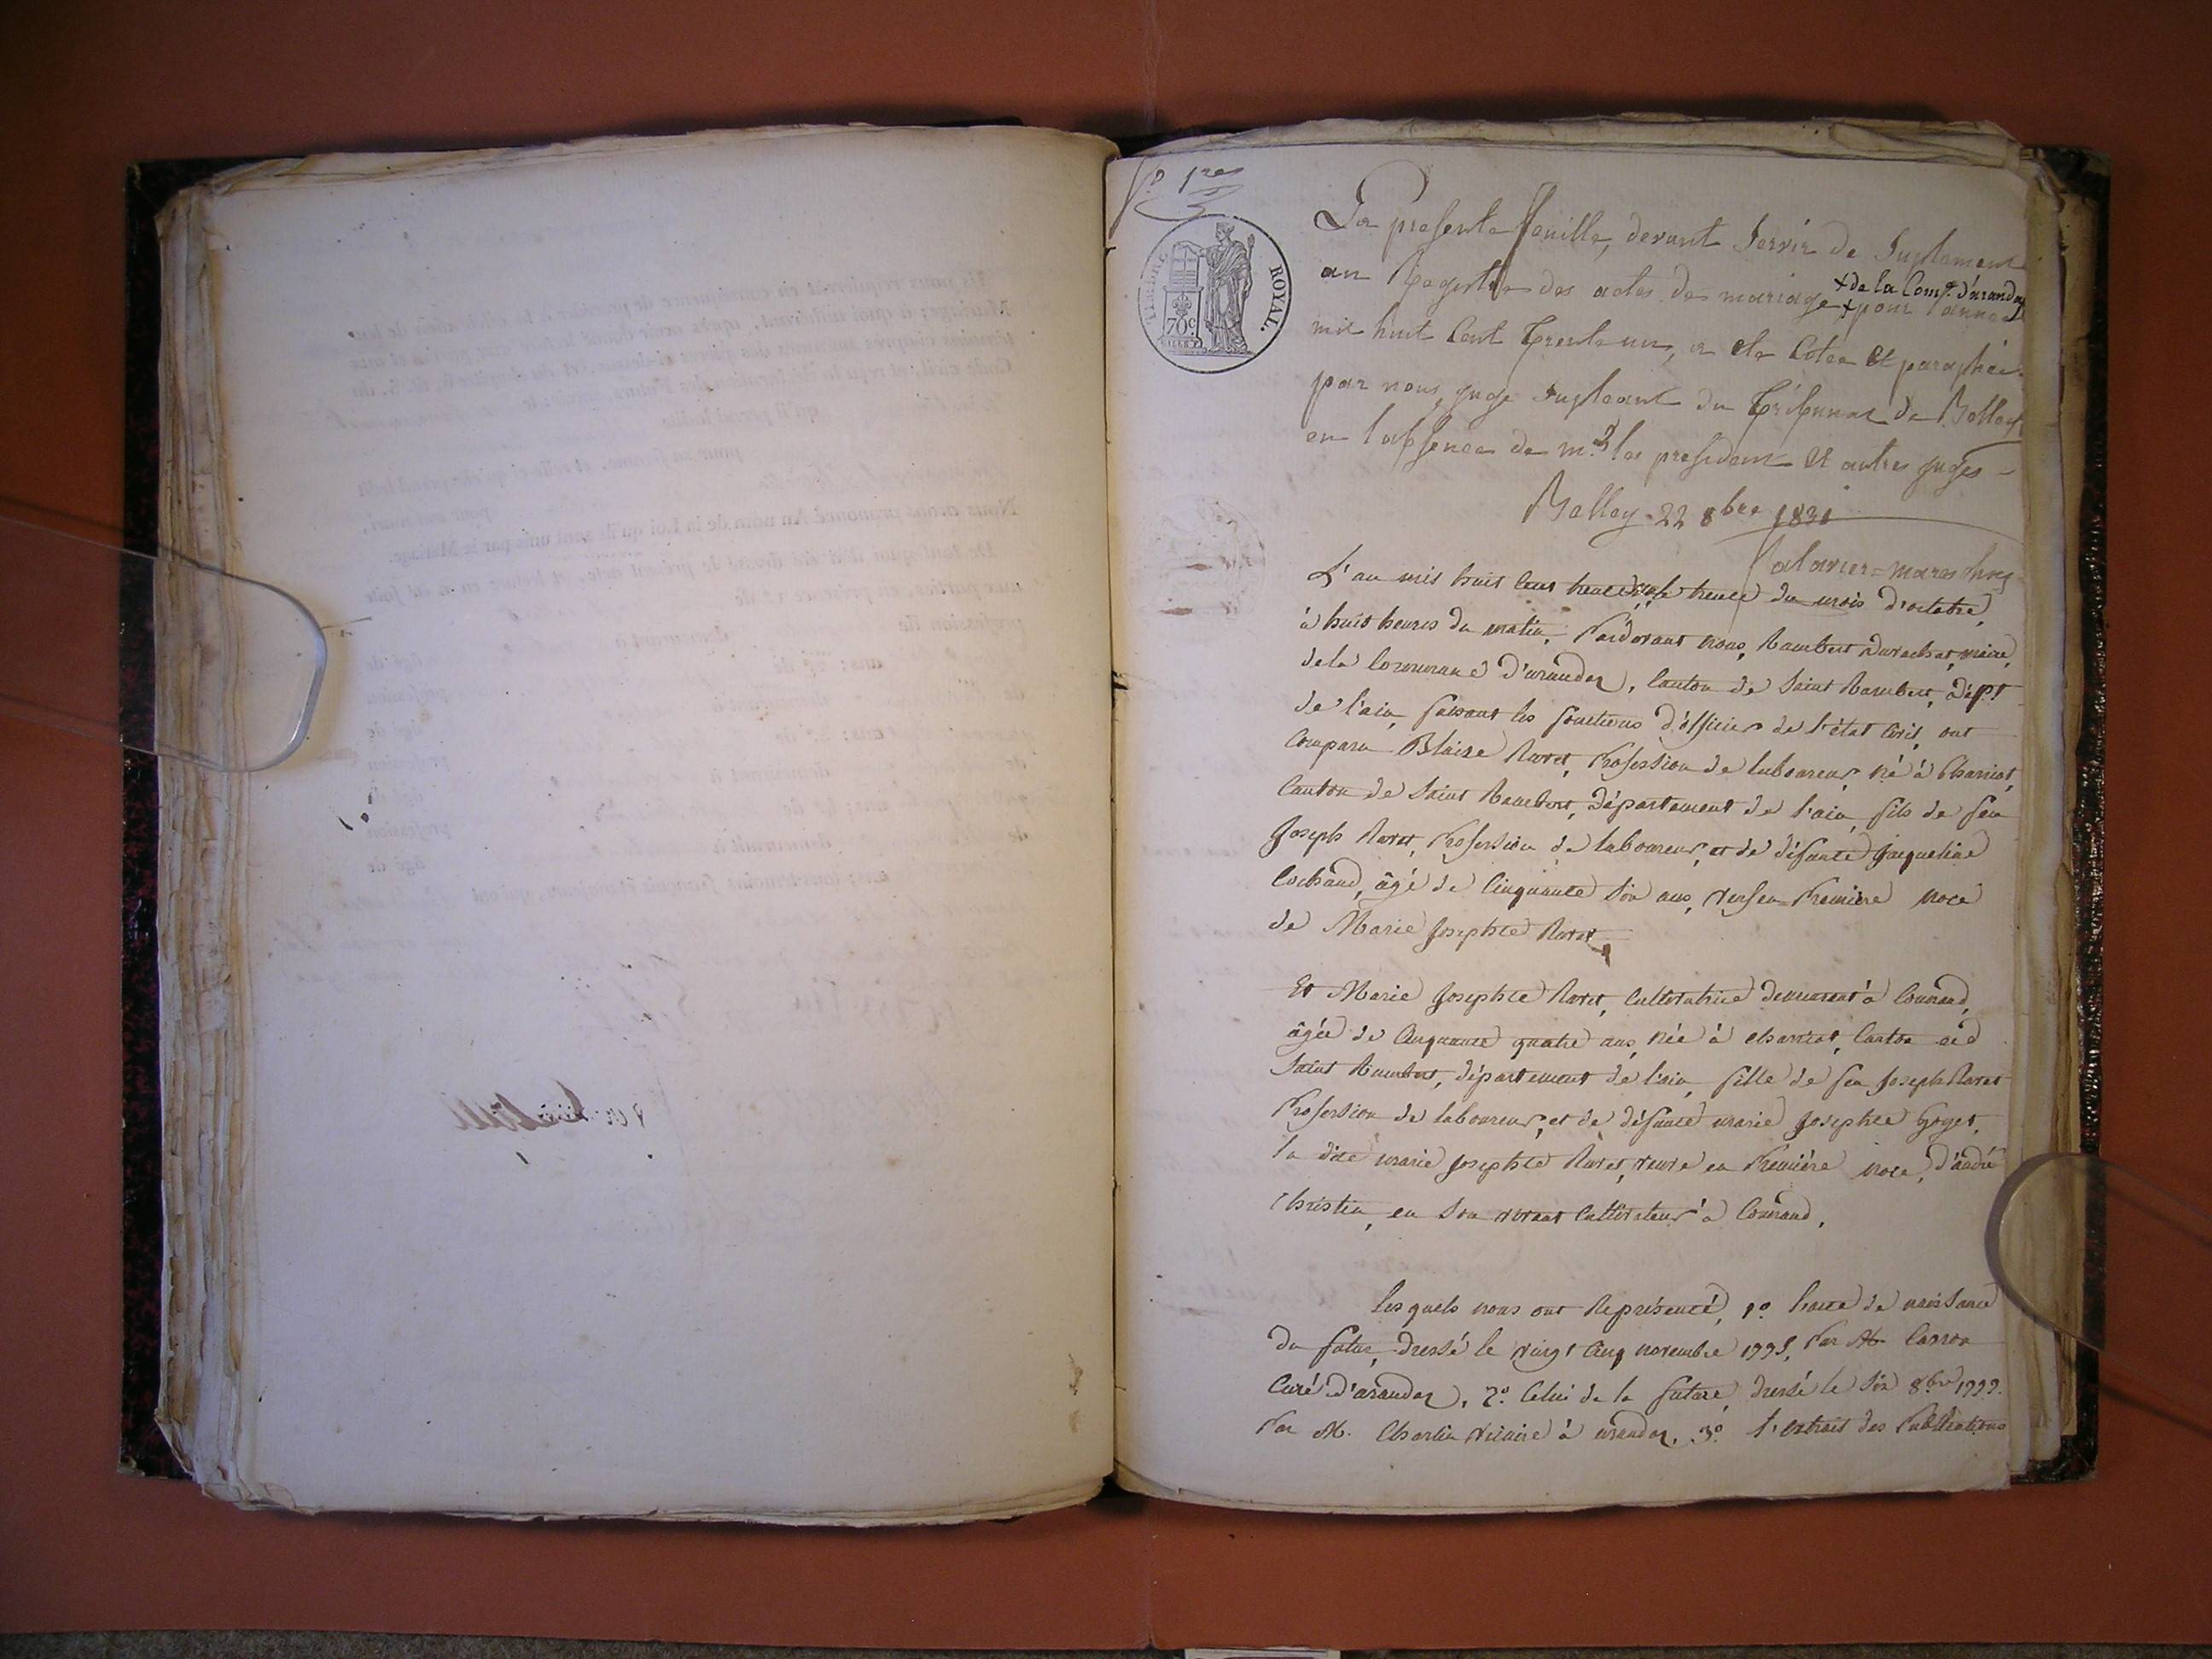 f.º 1.re
TIMBRE ROYAL.
70c.
La presente feuille, devant servir de Suplement
au Registre des actes de mariage + pour l'année
+ de la Com.e d'arandas
mil huit Cent trente un, a ete Cotée et paraphée
par nous, juge Supleant du Tribunal de Belley
en l'absence de mr. le president et autres juges
Belley 22 8bre 1831
L'an mil huit Cent trente un le trente du mois d'octobre,
à huit heures du matin. Pardevant nous, Rambert maire,
de la Commune d'arandas, Canton de Saint Rambert, dép.t
de l'ain, faisant les fonctions d'officier de l'état Civil, ont
Comparu Blaise Ravet, Profession de laboureur né à
Canton de Saint Rambert, département de l'ain, fils de feu
Joseph Ravet, Profession de laboureur, et de défunte Jacqueline
Cochand, âgé de Cinquante Six ans, veuf en Première noce
de Marie Josephte Ravet
Et Marie Josephte Ravet, Cultivatrice demeurant à Conand,
âgée de Cinquante quatre ans, née à Canton de
Saint Rambert, département de l'ain, fille de feu Joseph Ravet
Profession de laboureur, et de défunte marie Josephte
la dite marie Josephte Ravet, veuve en Première noce, d'andré
Christin, en Son vivant Cultivateur à Conand.
Les quels nous ont Représenté, 1º. l'acte de naissance
du futur, dressé le vingt Cinq novembre Par M. Carron
Curé d'arandas, 2º. Celui de la future, dressé le Six 8.bre
Par M. Charlin Vicaire à arandas. 3º. l'extrait des Publications